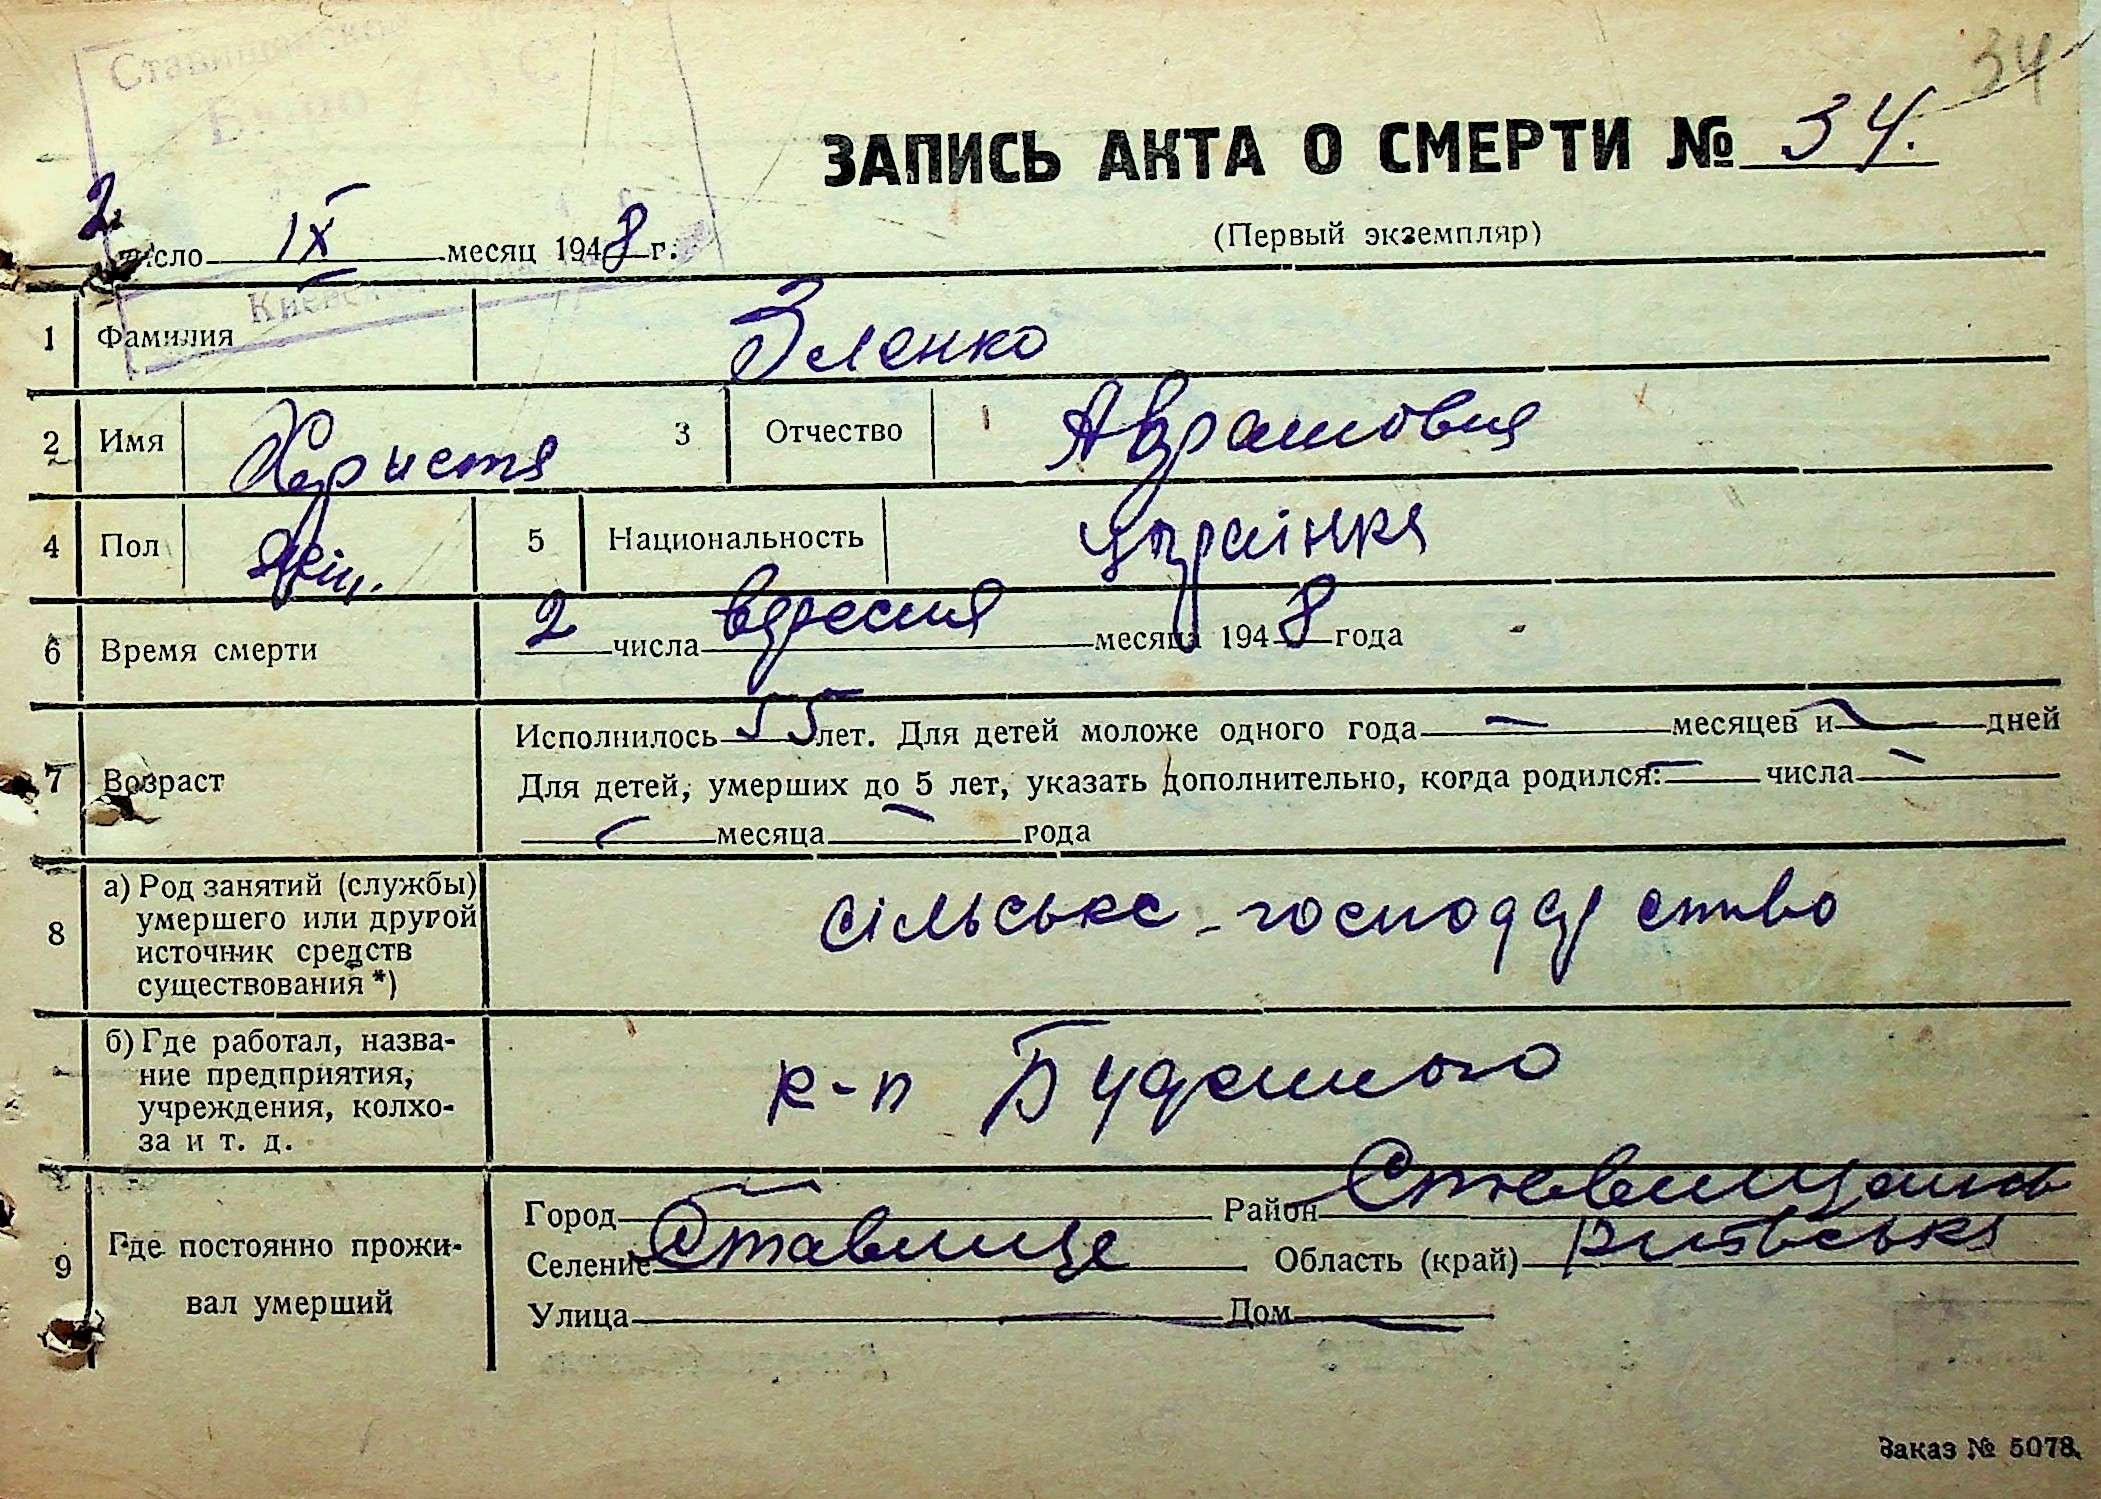 34
Ставищанское
Бюро ЗАГС
ЗАПИСЬ АКТА О СМЕРТИ № 34.
(Первый экземпляр)
2 число IX месяц 1948 г.
1 Фамилия Зленко
2 Имя Христя 3 Отчество
4 Пол жін. 5 Национальность українка
6 Время смерти 2 числа вересня месяца 1948 года
7 Возраст
Исполнилось 55 лет. Для детей моложе одного года — месяцев и — дней
Для детей, умерших до 5 лет, указать дополнительно, когда родился: — числа —
— месяца — года
8 а) Род занятий (службы)
умершего или другой
источник средств
существования *)
сільське-господарство
б) Где работал, назва-
ние предприятия,
учреждения, колхо-
за и т. д.
к-п Буденного
9 Где постоянно прожи-
вал умерший
Город — Район Ставищанськ
Селение Ставище Область (край) Київська
Улица — Дом —
Заказ № 5078.